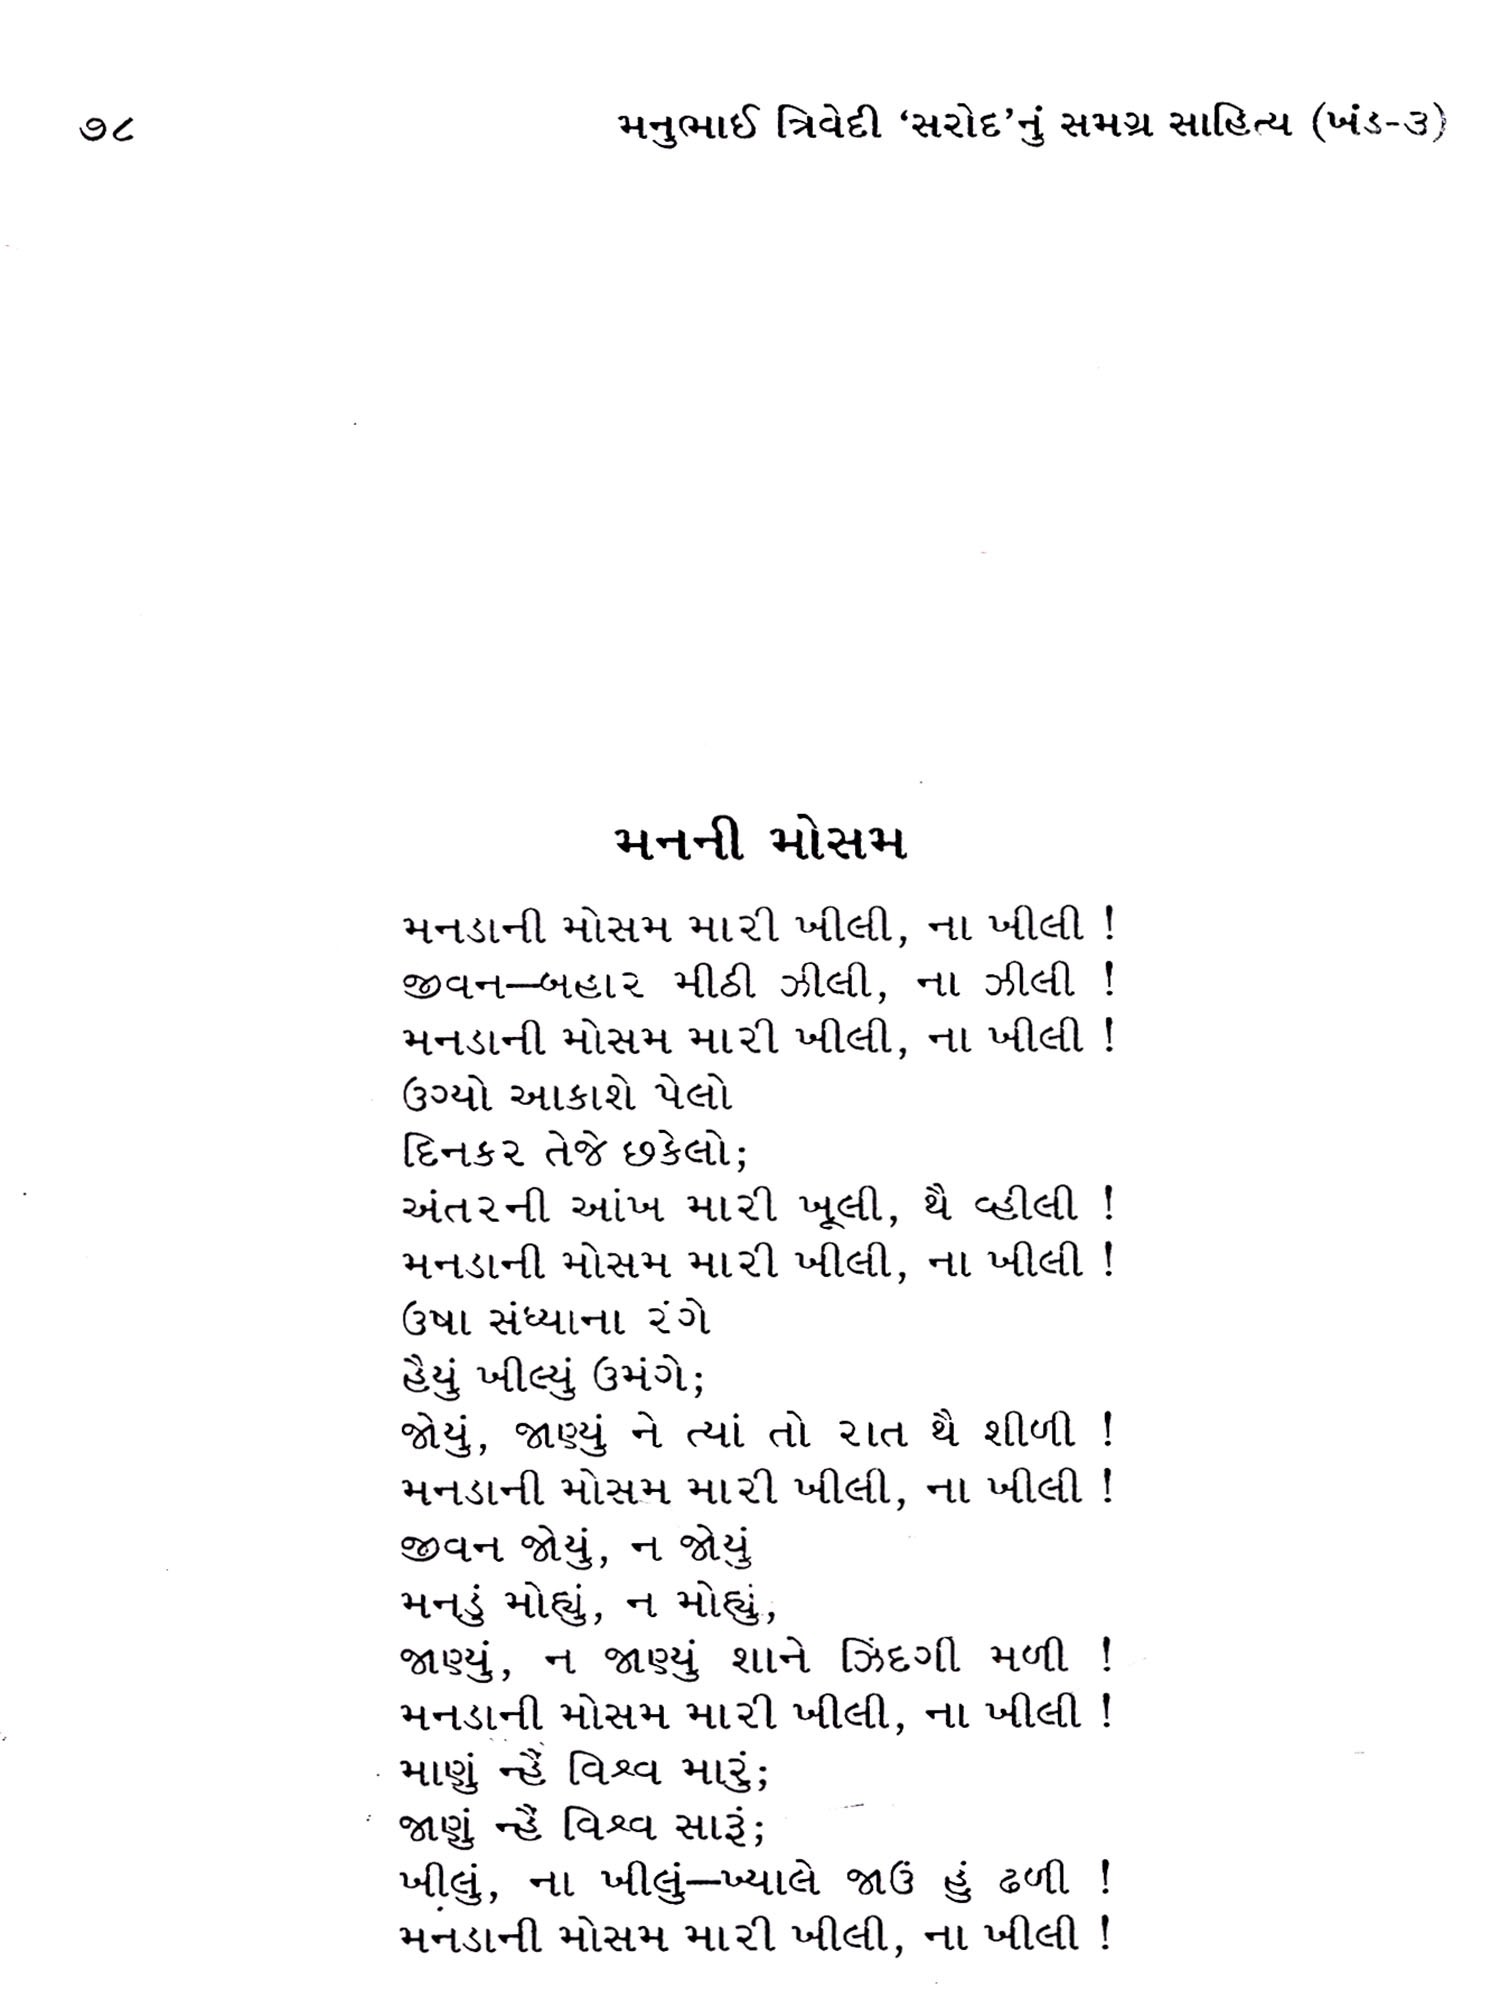 ૭૮ મનુભાઈ ત્રિવેદી ‘સરોદ’નું સમગ્ર સાહિત્ય (ખંડ-૩)
મનની મોસમ
મનડાની મોસમ મારી ખીલી, ના ખીલી !
જીવન—બહાર મીઠી ઝીલી, ના ઝીલી !
મનડાની મોસમ મારી ખીલી, ના ખીલી !
ઉગ્યો આકાશે પેલો
દિનકર તેજે છકેલો;
અંતરની આંખ મારી ખૂલી, થૈ વ્હીલી !
મનડાની મોસમ મારી ખીલી, ના ખીલી !
ઉષા સંધ્યાના રંગે
હૈયું ખીલ્યું ઉમંગે;
જોયું, જાણ્યું ને ત્યાં તો રાત થૈ શીળી !
મનડાની મોસમ મારી ખીલી, ના ખીલી !
જીવન જોયું, ન જોયું
મનડું મોહ્યું, ન મોહ્યું,
જાણ્યું, ન જાણ્યું શાને ઝિંદગી મળી !
મનડાની મોસમ મારી ખીલી, ના ખીલી !
માણું ન્હૈં વિશ્વ મારું;
જાણું ન્હૈં વિશ્વ સારૂં;
ખીલું, ના ખીલું—ખ્યાલે જાઉં હું ઢળી !
મનડાની મોસમ મારી ખીલી, ના ખીલી !